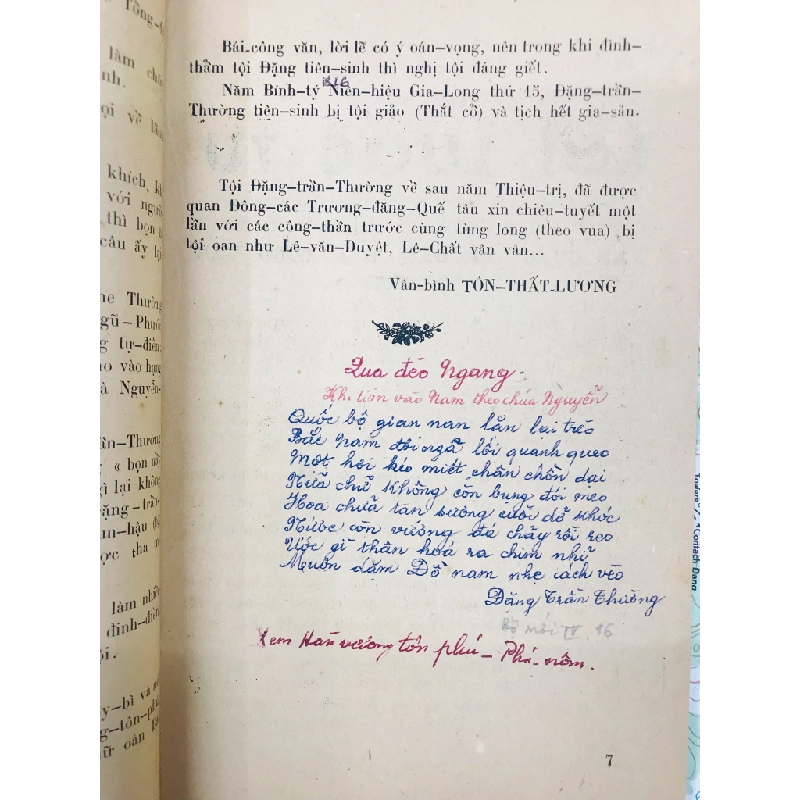 Bái-công văn, lời lẽ có ý oán-vọng, nên trong khi đình-
thẩm tội Đặng tiên-sinh thì nghị tội đáng giết.
Năm Bính-tý Niên-hiệu Gia-Long thứ 15, Đặng-trần-
Thường tiên-sinh bị tội giảo (Thắt cổ) và tịch hết gia-sản.
Tội Đặng-trần-Thường về sau năm Thiệu-trị, đã được
quan Đông-các Trương-đăng-Quế tâu xin chiêu-tuyết một
lần với các công-thần trước cùng tùng long (theo vua) bị
tội oan như Lê-văn-Duyệt, Lê-Chất vân vân...
Vân-bình TÔN-THẤT-LƯƠNG
Qua đèo Ngang.
Khi tiến vào Nam theo chúa Nguyễn
Quốc bộ gian nan lắn lại trèo
Bắc Nam đôi ngã lối quanh queo
Một hơi kéo miết chân chồn dại
Nửa chữ không còn bụng đói meo
Hoa chửa tàn sương cuốc dở khóc
Nước còn vướng đá chảy rồi reo
Ước gì thân hoá ra chim nhỉ
Muôn dặm Đồ nam nhẹ cách vèo
Đặng Trần Thường
Bộ mới IV 16
Xem Hàn vương tôn phú - Phú nôm.
7
Thường
ngũ-Phước
tự-điển
vào hạng
Nguyễn-
-Thương
« bọn
lại không
Đặng-trần-
làm nhiều
đình-điền